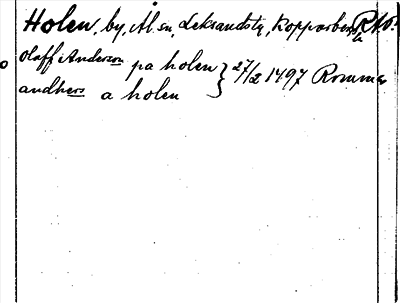 Holen, by, Ål sn, Leksandstg, Kopparbergs R.A.P.
Olaff Anderson pa holen } 27/2 1497 Romma
andhers a holen